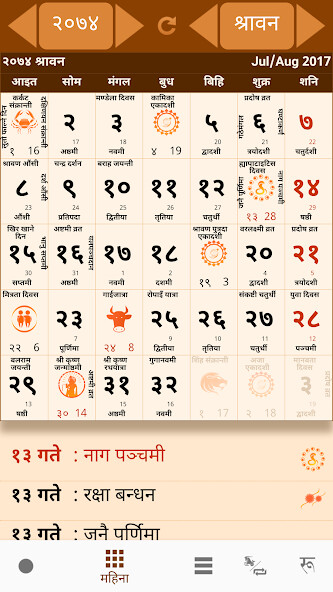 २०७४ श्रावन
२०७४ श्रावन Jul/Aug 2017
आइत सोम मंगल बुध बिहि शुक्र शनि
कर्कट संक्रान्ती मण्डेला दिवस कामिका एकादशी प्रदोष व्रत
१ 16 २ 17 ३ 18 ४ 19 ५ 20 ६ 21 ७ 22
अष्टमी नवमी द्वादशी त्रयोदशी चतुर्दशि
श्रावण औंसी चन्द्र दर्शन बराह जयन्ती ह्यापाटाइटिस दिवस
८ 23 ९ 24 १० 25 ११ 26 १२ 27 १३ 28 १४ 29
औंशी प्रतिपदा द्वितीया तृतिया चतुर्थी षष्ठी
खिर खाने दिन अष्टमी व्रत श्रावण पुत्रदा एकादशी वरलक्ष्मी व्रत प्रदोष व्रत
१५ 30 १६ 31 १७ 1 १८ 2 १९ 3 २० 4 २१ 5
सप्तमी अष्टमी नवमी दशमी द्वादशी त्रयोदशी
मित्रता दिवस गाईजात्रा रोपाईं यात्रा संकष्टी चतुर्थी युवा दिवस
२२ 6 २३ 7 २४ 8 २५ 9 २६ 10 २७ 11 २८ 12
पूर्णिमा द्वितीया तृतिया चतुर्थी पञ्चमी
बलराम जयन्ती श्री कृष्ण जन्माष्टमी श्री कृष्ण रथयात्रा गुगानवमी सिंह संक्रान्ती अजा एकादशी मानवता दिवस
२९ 13 ३० 14 ३१ 15 ३२ 16 १ 17 २ 18 ३
षष्ठी अष्टमी नवमी
१३ गते : नाग पञ्चमी
१३ गते : रक्षा बन्धन
१३ गते : जनै पूर्णिमा
महिना
रू